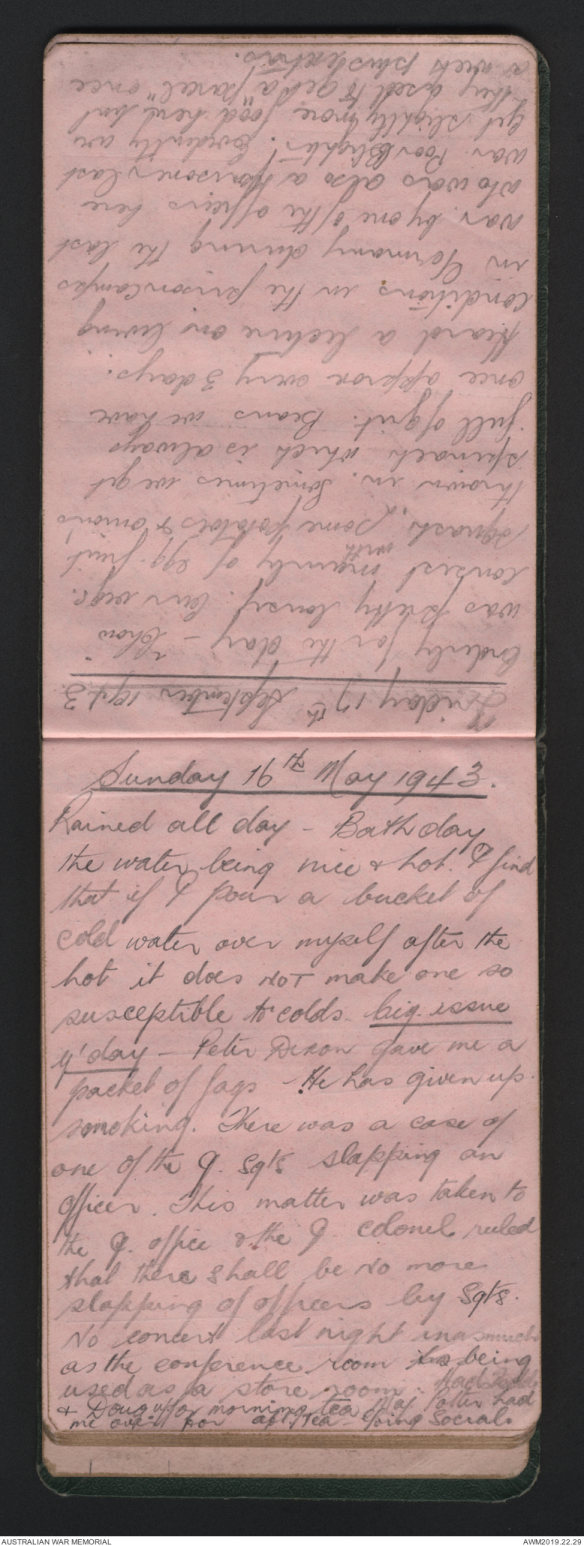 Friday 17th September 1943
Orderly for the day - Chow
was pretty lousy. Our vege.
consist mainly of egg fruit
squash, with some potatoes & onions
thrown in. Sometimes we get
spinach which is always
full of grit. Beans we have
once approx every 3 days.
Heard a lecture on living
conditions in the prison camps
in Germany during the last
war by one of the officers here
who was also a prisoner last
war. Poor Blighter. Evidently we
get slightly more food here but
they used to get a "parcel" once
a week plus extras.
Sunday 16th May 1943.
Rained all day - Bath day
the water being nice & hot. I find
that if I pour a bucket of
cold water over myself after the
hot it does NOT make one so
susceptible to colds. Cig. issue
y'day - Peter Dixon gave me a
packet of fags. He has given up
smoking. There was a case of
one of the J. Sgts slapping an
officer. This matter was taken to
the J. office & the J colonel ruled
that there shall be no more
slapping of officers by Sgts.
No concert last night inasmuch
as the conference room is being
used as a store room. Had
& Doug for morning tea. May Potter had
me over for aft/tea. Going Social.
AUSTRALIAN WAR MEMORIAL
AWM2019.22.29